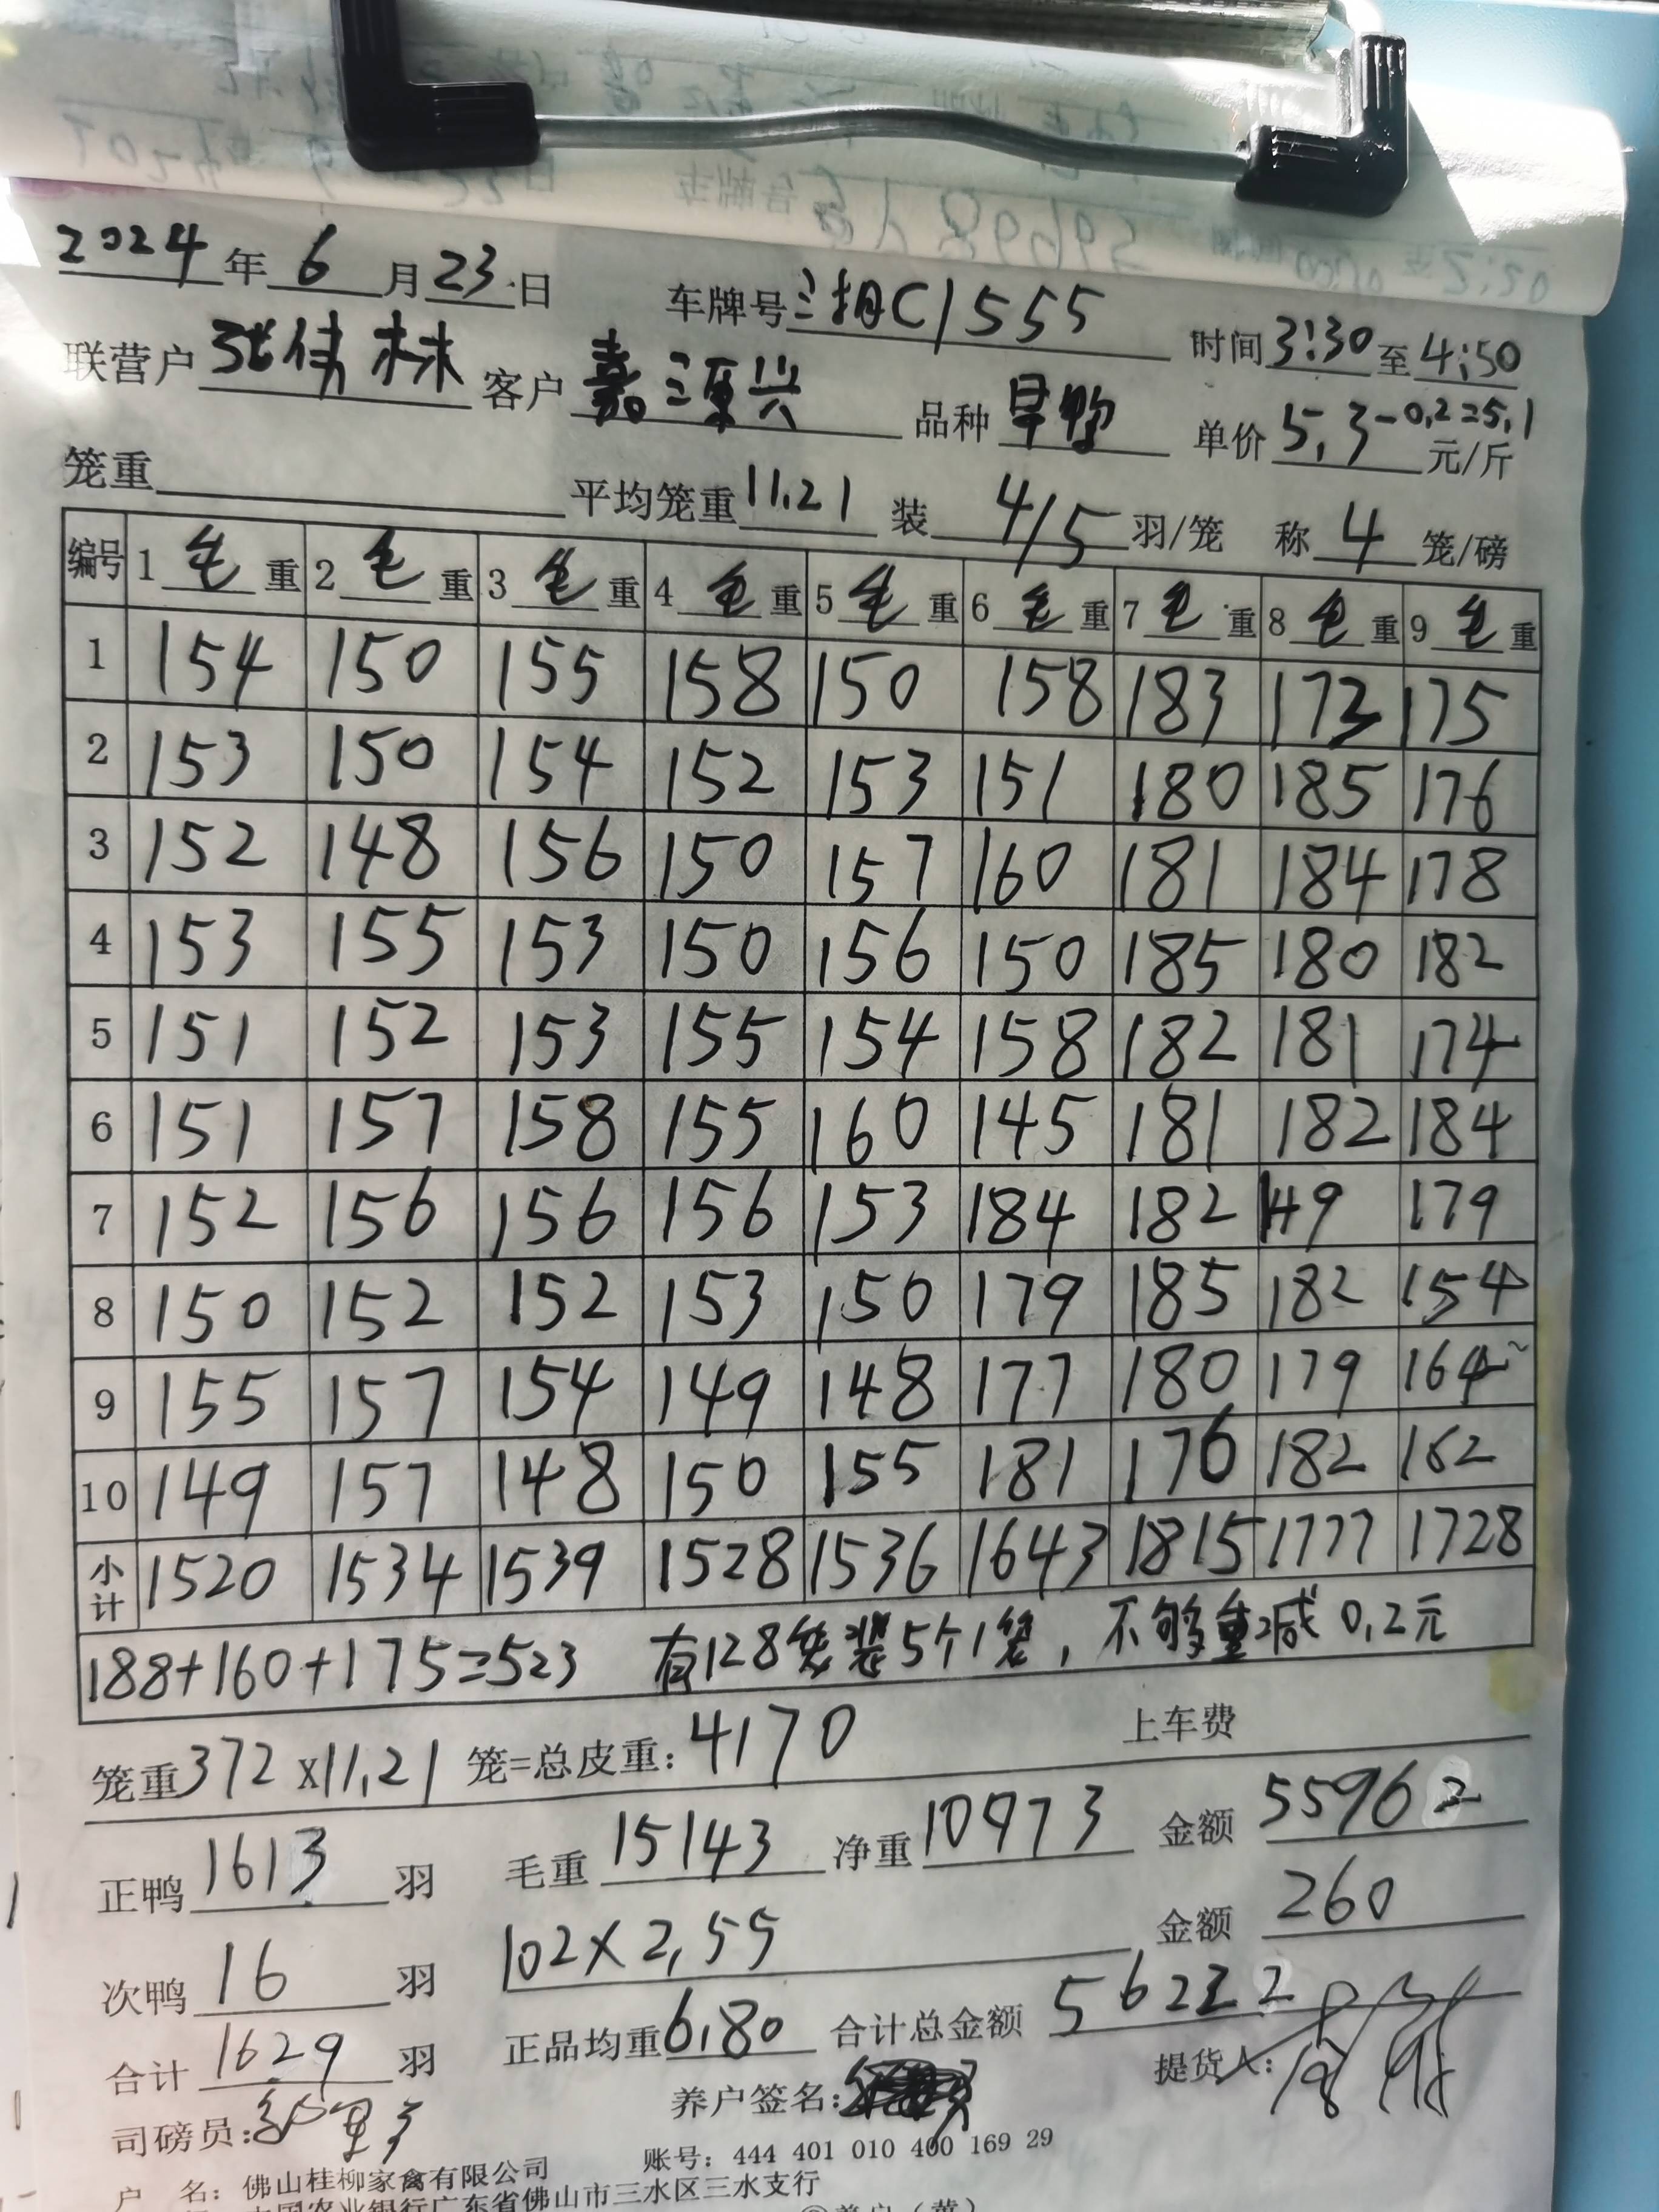 2024年6月23日 车牌号湘C1555 时间3:30至4:50
联营户张伟林 客户嘉源兴 品种旱鸭 单价5.3-0.2=5.1元/斤
笼重 平均笼重11.21 装4/5羽/笼 称4笼/磅
编号 1毛重 2毛重 3毛重 4毛重 5毛重 6毛重 7毛重 8毛重 9毛重
1 154 150 155 158 150 158 183 173 175
2 153 150 154 152 153 151 180 185 176
3 152 148 156 150 157 160 181 184 178
4 153 155 153 150 156 150 185 180 182
5 151 152 153 155 154 158 182 181 174
6 151 157 158 155 160 145 181 182 184
7 152 156 156 156 153 184 182 149 179
8 150 152 152 153 150 179 185 182 154
9 155 157 154 149 148 177 180 179 164
10 149 157 148 150 155 181 176 182 162
小计 1520 1534 1539 1528 1536 1643 1815 1777 1728
188+160+175=523 有128笼装5个1笼,不够重减0.2元
笼重372x11.21笼=总皮重:4170 上车费
正鸭1613羽 毛重15143 净重10973 金额55962
次鸭16羽 102×2.55 金额260
合计1629羽 正品均重6.80 合计总金额56222
司磅员: 养户签名: 提货人:
户 名:佛山桂柳家禽有限公司 账号:444 401 010 400 169 29
中国农业银行广东省佛山市三水区三水支行